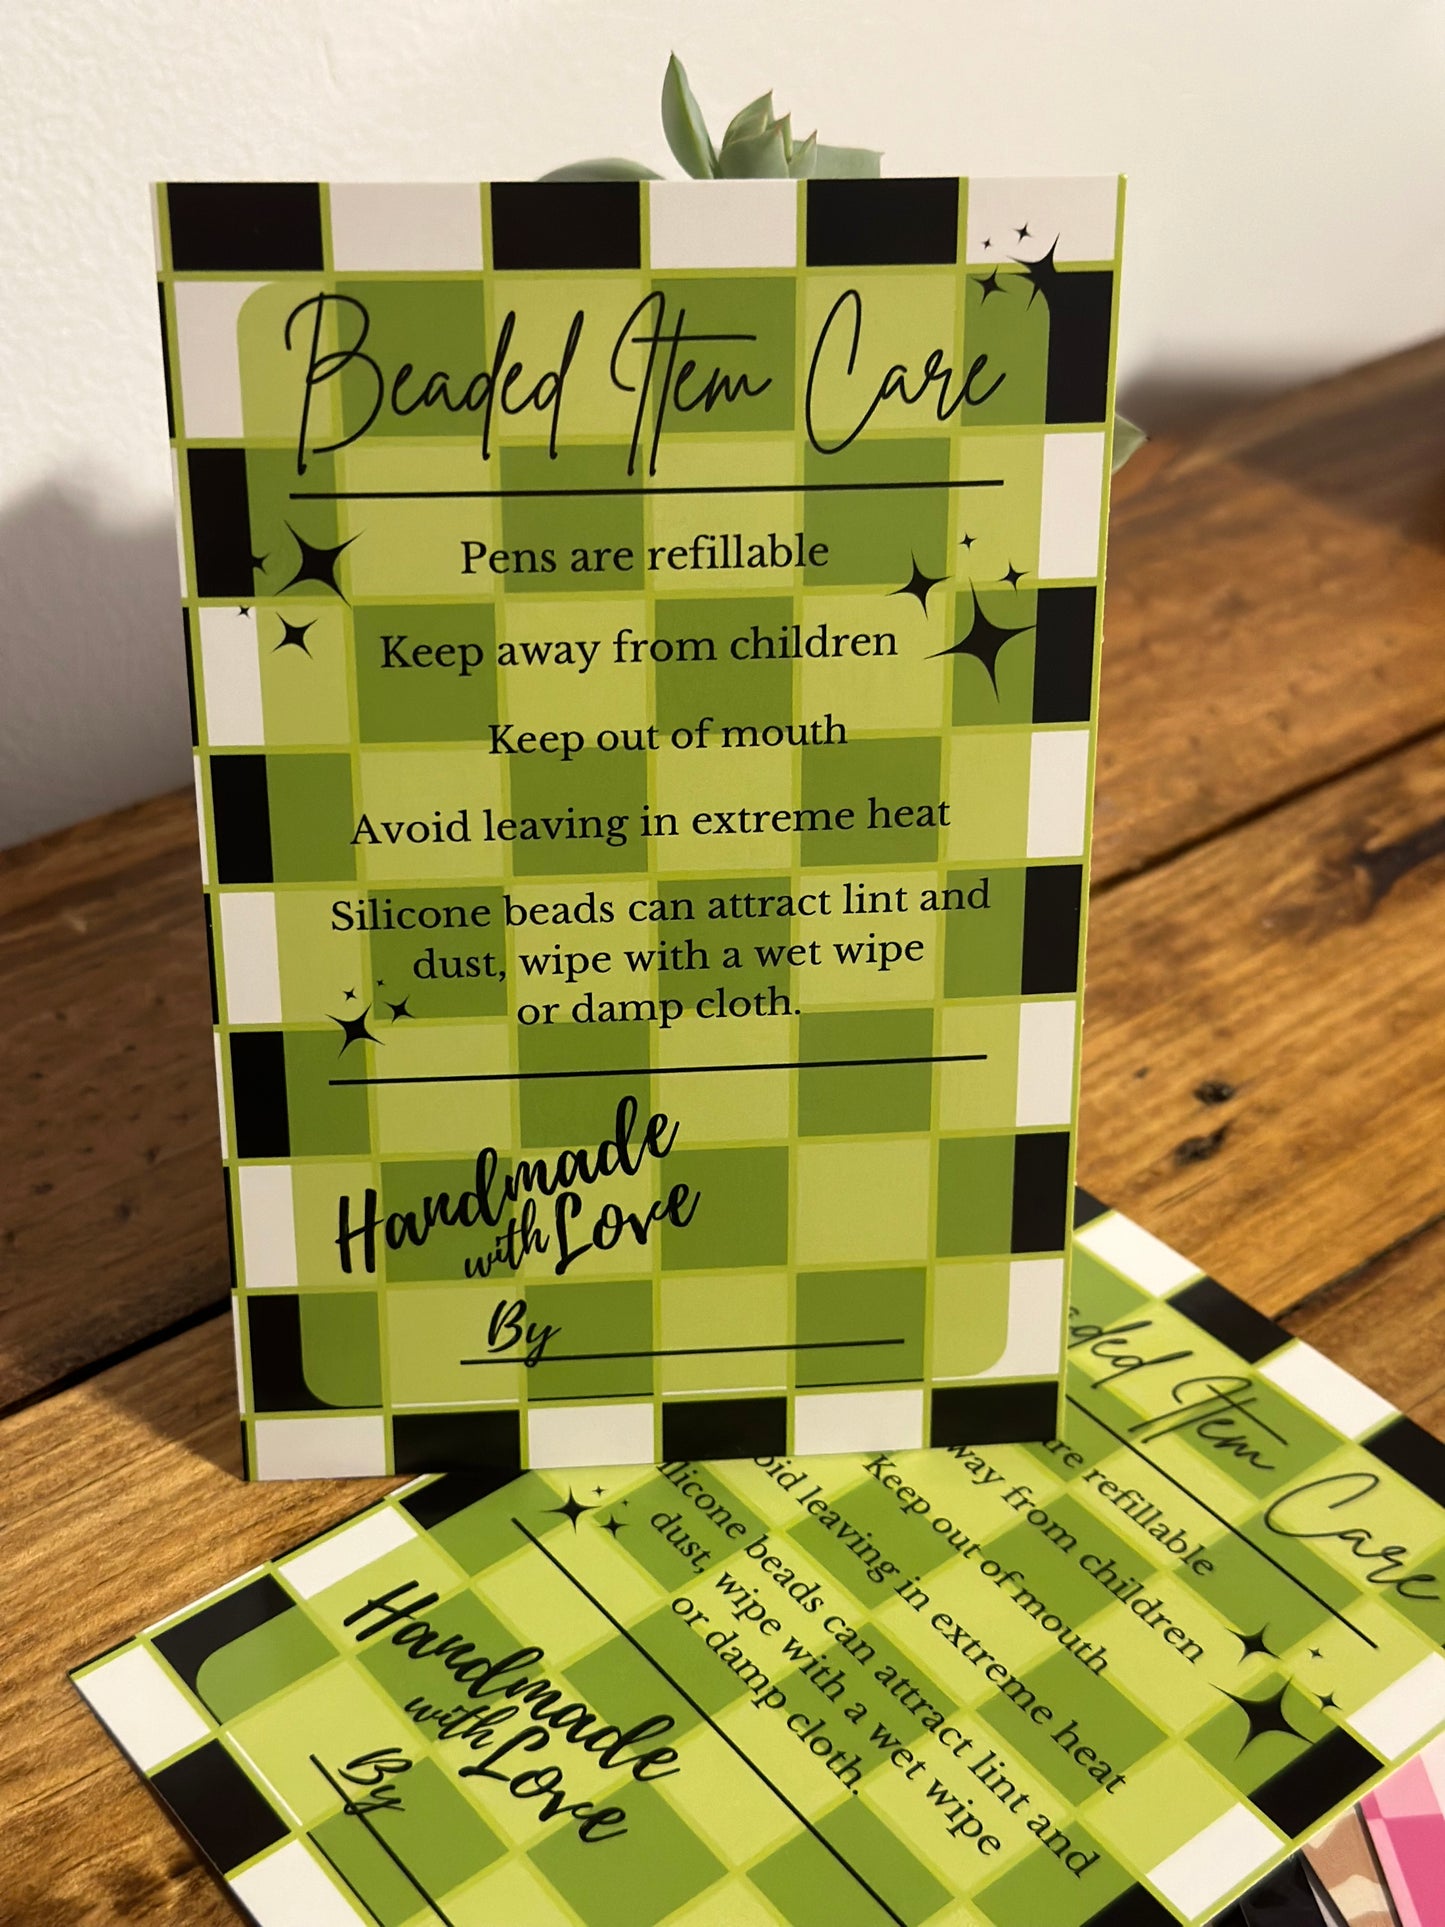 Beaded Item Care
Pens are refillable
Keep away from children
Keep out of mouth
Avoid leaving in extreme heat
Silicone beads can attract lint and
dust, wipe with a wet wipe
or damp cloth.
Handmade
with Love
By
Item Care
refillable
from children
Keep out of mouth
leaving in extreme heat
beads can attract lint and
dust, wipe with a wet wipe
or damp cloth.
Handmade
with Love
By